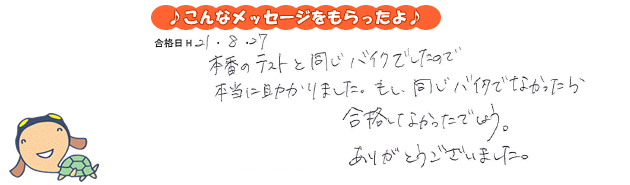 ♪こんなメッセージをもらったよ♪
合格日H21.8.27
本番のテストと同じバイクでしたので
本当に助かりました。もし、同じバイクでなかったら
合格してなかったでしょう。
ありがとうございました。